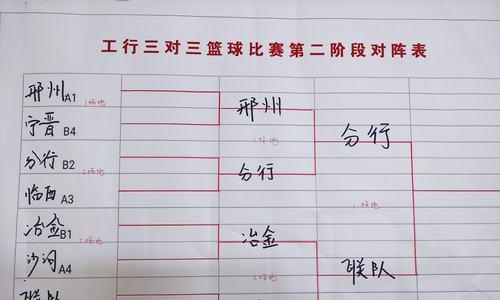 工行三对三篮球比赛第二阶段对阵表
邢州A1
1场地
宁晋B4
分行B2
2场地
临西A3
冶金B1
2场地
沙河A4
联队
邢州
1场地
分行
冶金
2场地
分行
联队